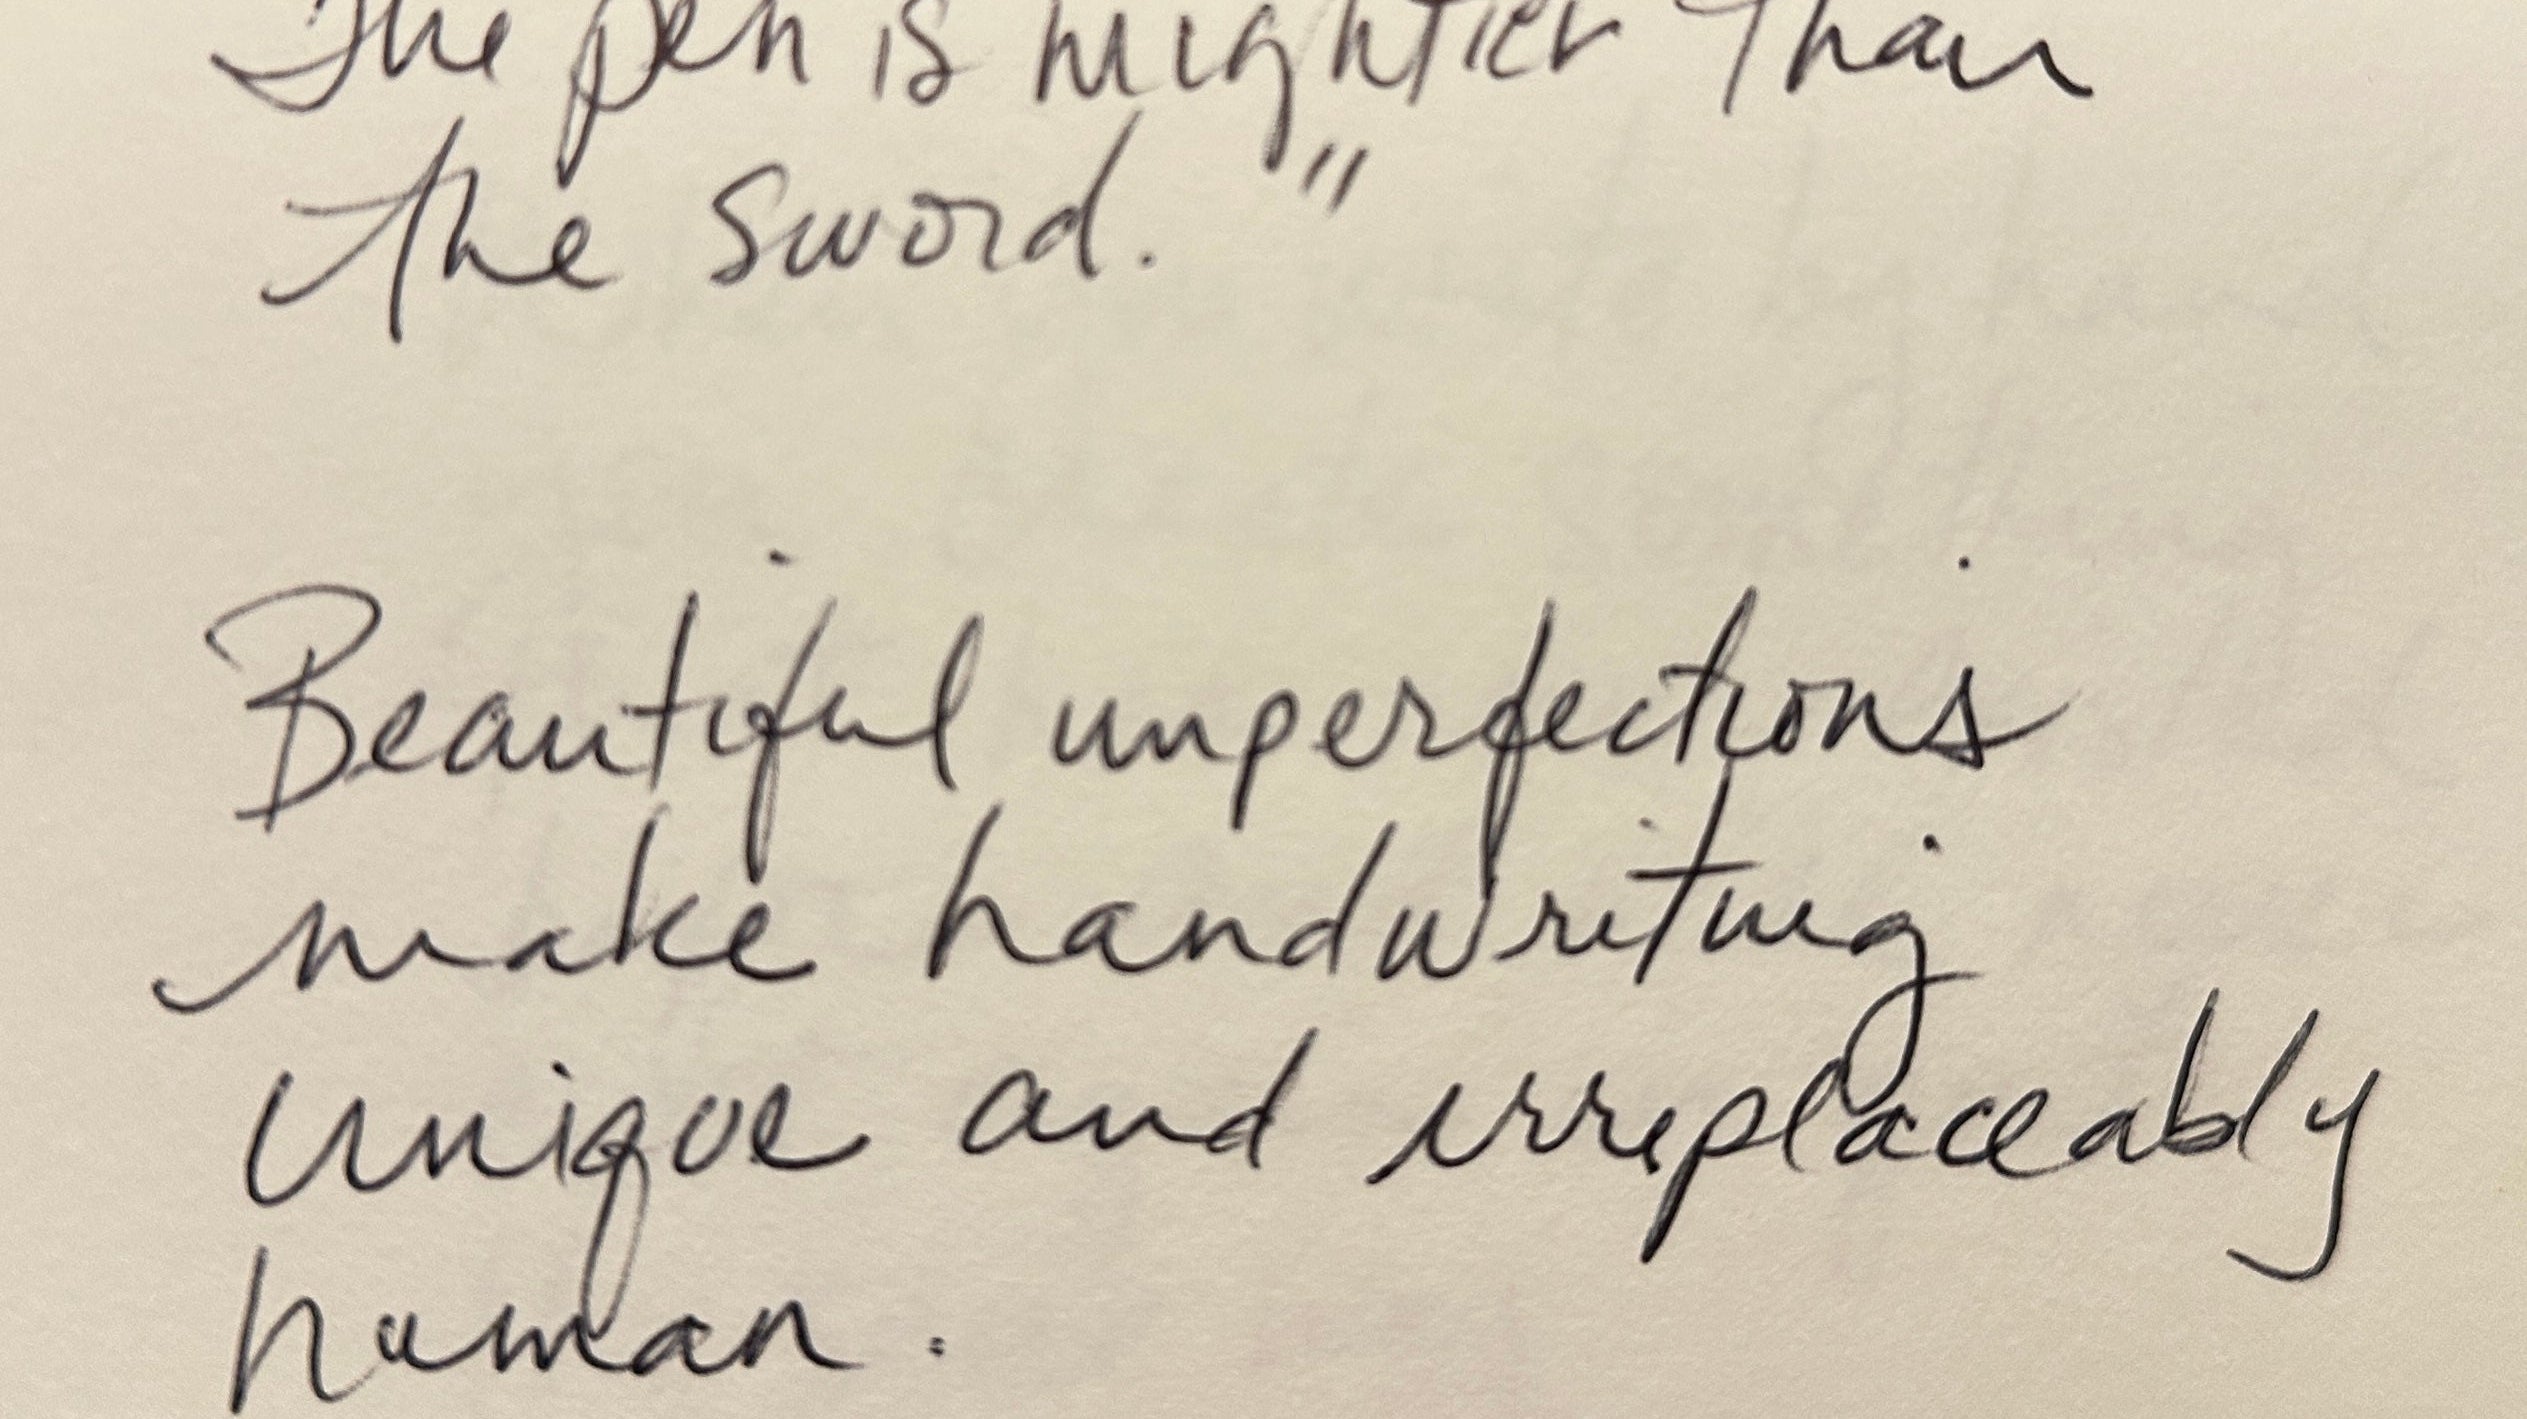 The pen is mightier than
the sword."
Beautiful imperfections
make handwriting
unique and irreplaceably
human.